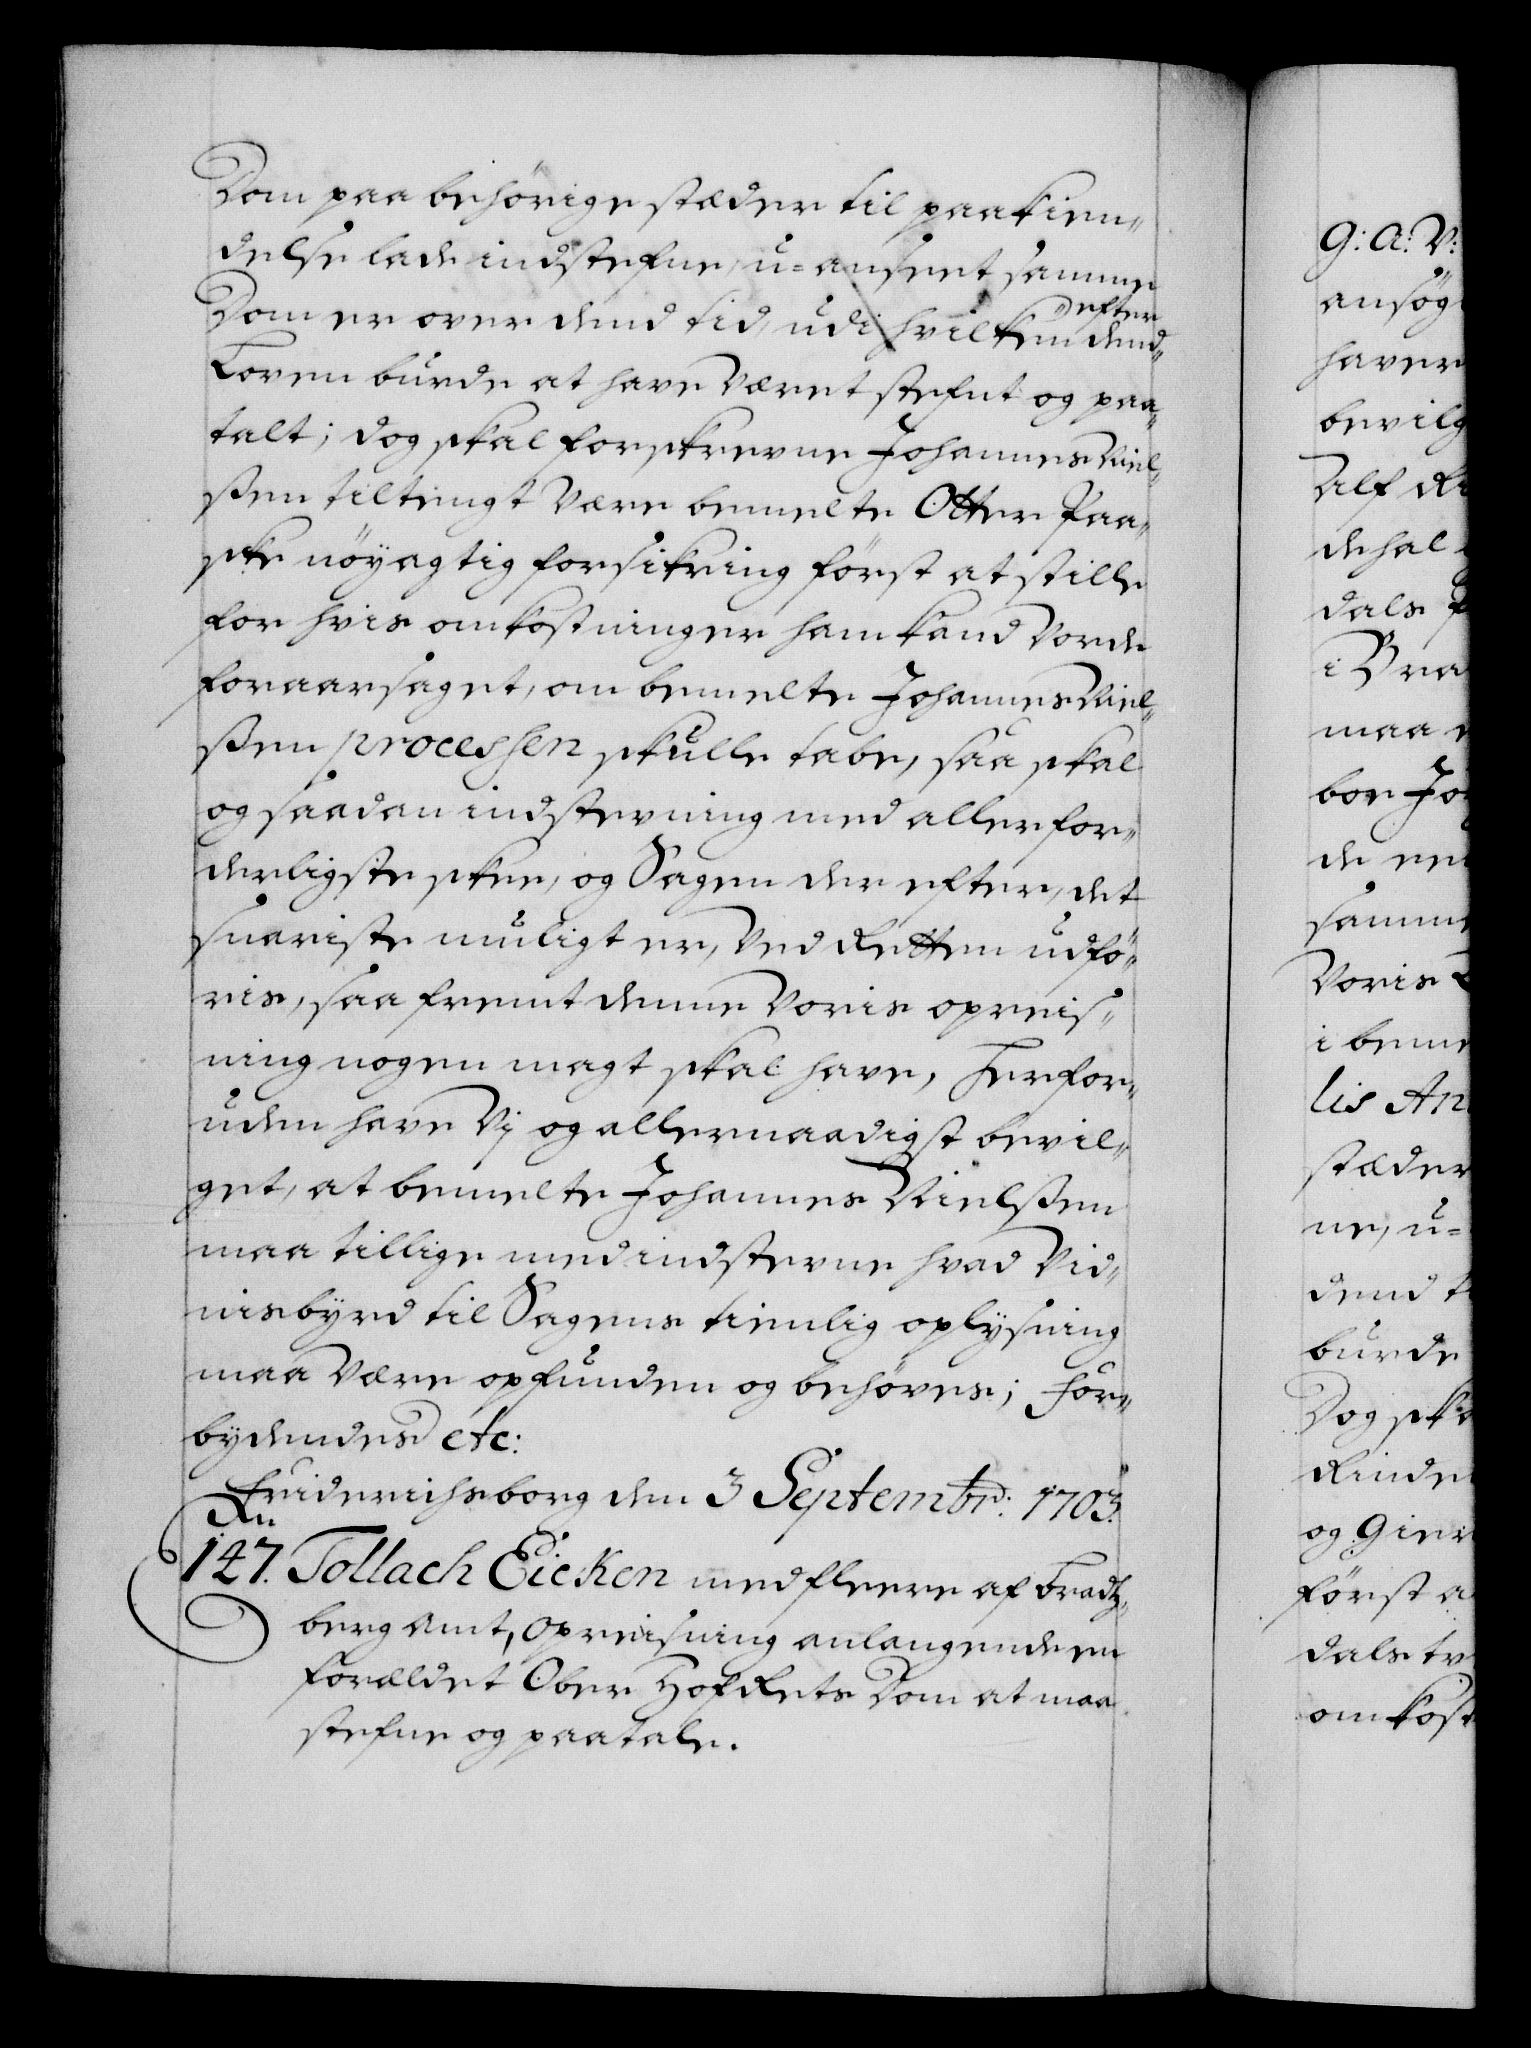 Dom paa behörige stæder til paakien-
delse lade indstefne, u-anseet samme
Dom er over dend tid, udi hvilken dend efter
Loven burde at have været stefnt og paa-
talt; dog skal forskrevne Johannes Niel-
ßen tiltengt være bemelte Otter Paa-
ske nöyagtig forsikring först at stille
for hvis omkostninger ham kand vorde
foraarsaget, om bemelte Johannes Niel-
ßen processen skulle tabe, saa skal
og saadan indstevning med allerfor-
derligste skee, og Sagen der efter, det
snariste muligt er, ved Retten udfö-
ris, saa fremt denne Voris opreis-
ning nogen magt skal have, Herfor-
uden have Vj og allernaadigst bevil-
get, at bemelte Johannes Nielßen
maa tillige med indstevne hvad Vid-
nisbyrd til Sagens tienlig oplysning
maa være opfunden og behöves; For-
bydendes etc:
Friderichsborg den 3 Septembr: 1703.
147. Tollach Eicken med fleere af Bradtz-
berg amt, Opreisning anlangende en
forældet Ober Hof Rets Dom at maa
stefne og paatale.
G: A: V:
ansög
haver
bevilg
Alf
dehal
dals
i Bra
maa
boe
de een
samme
Voris
i beme
lis An
stæder
ne, u-
dend t
burde
Dog ska
Rinde
og Gier
först a
dals
omkost